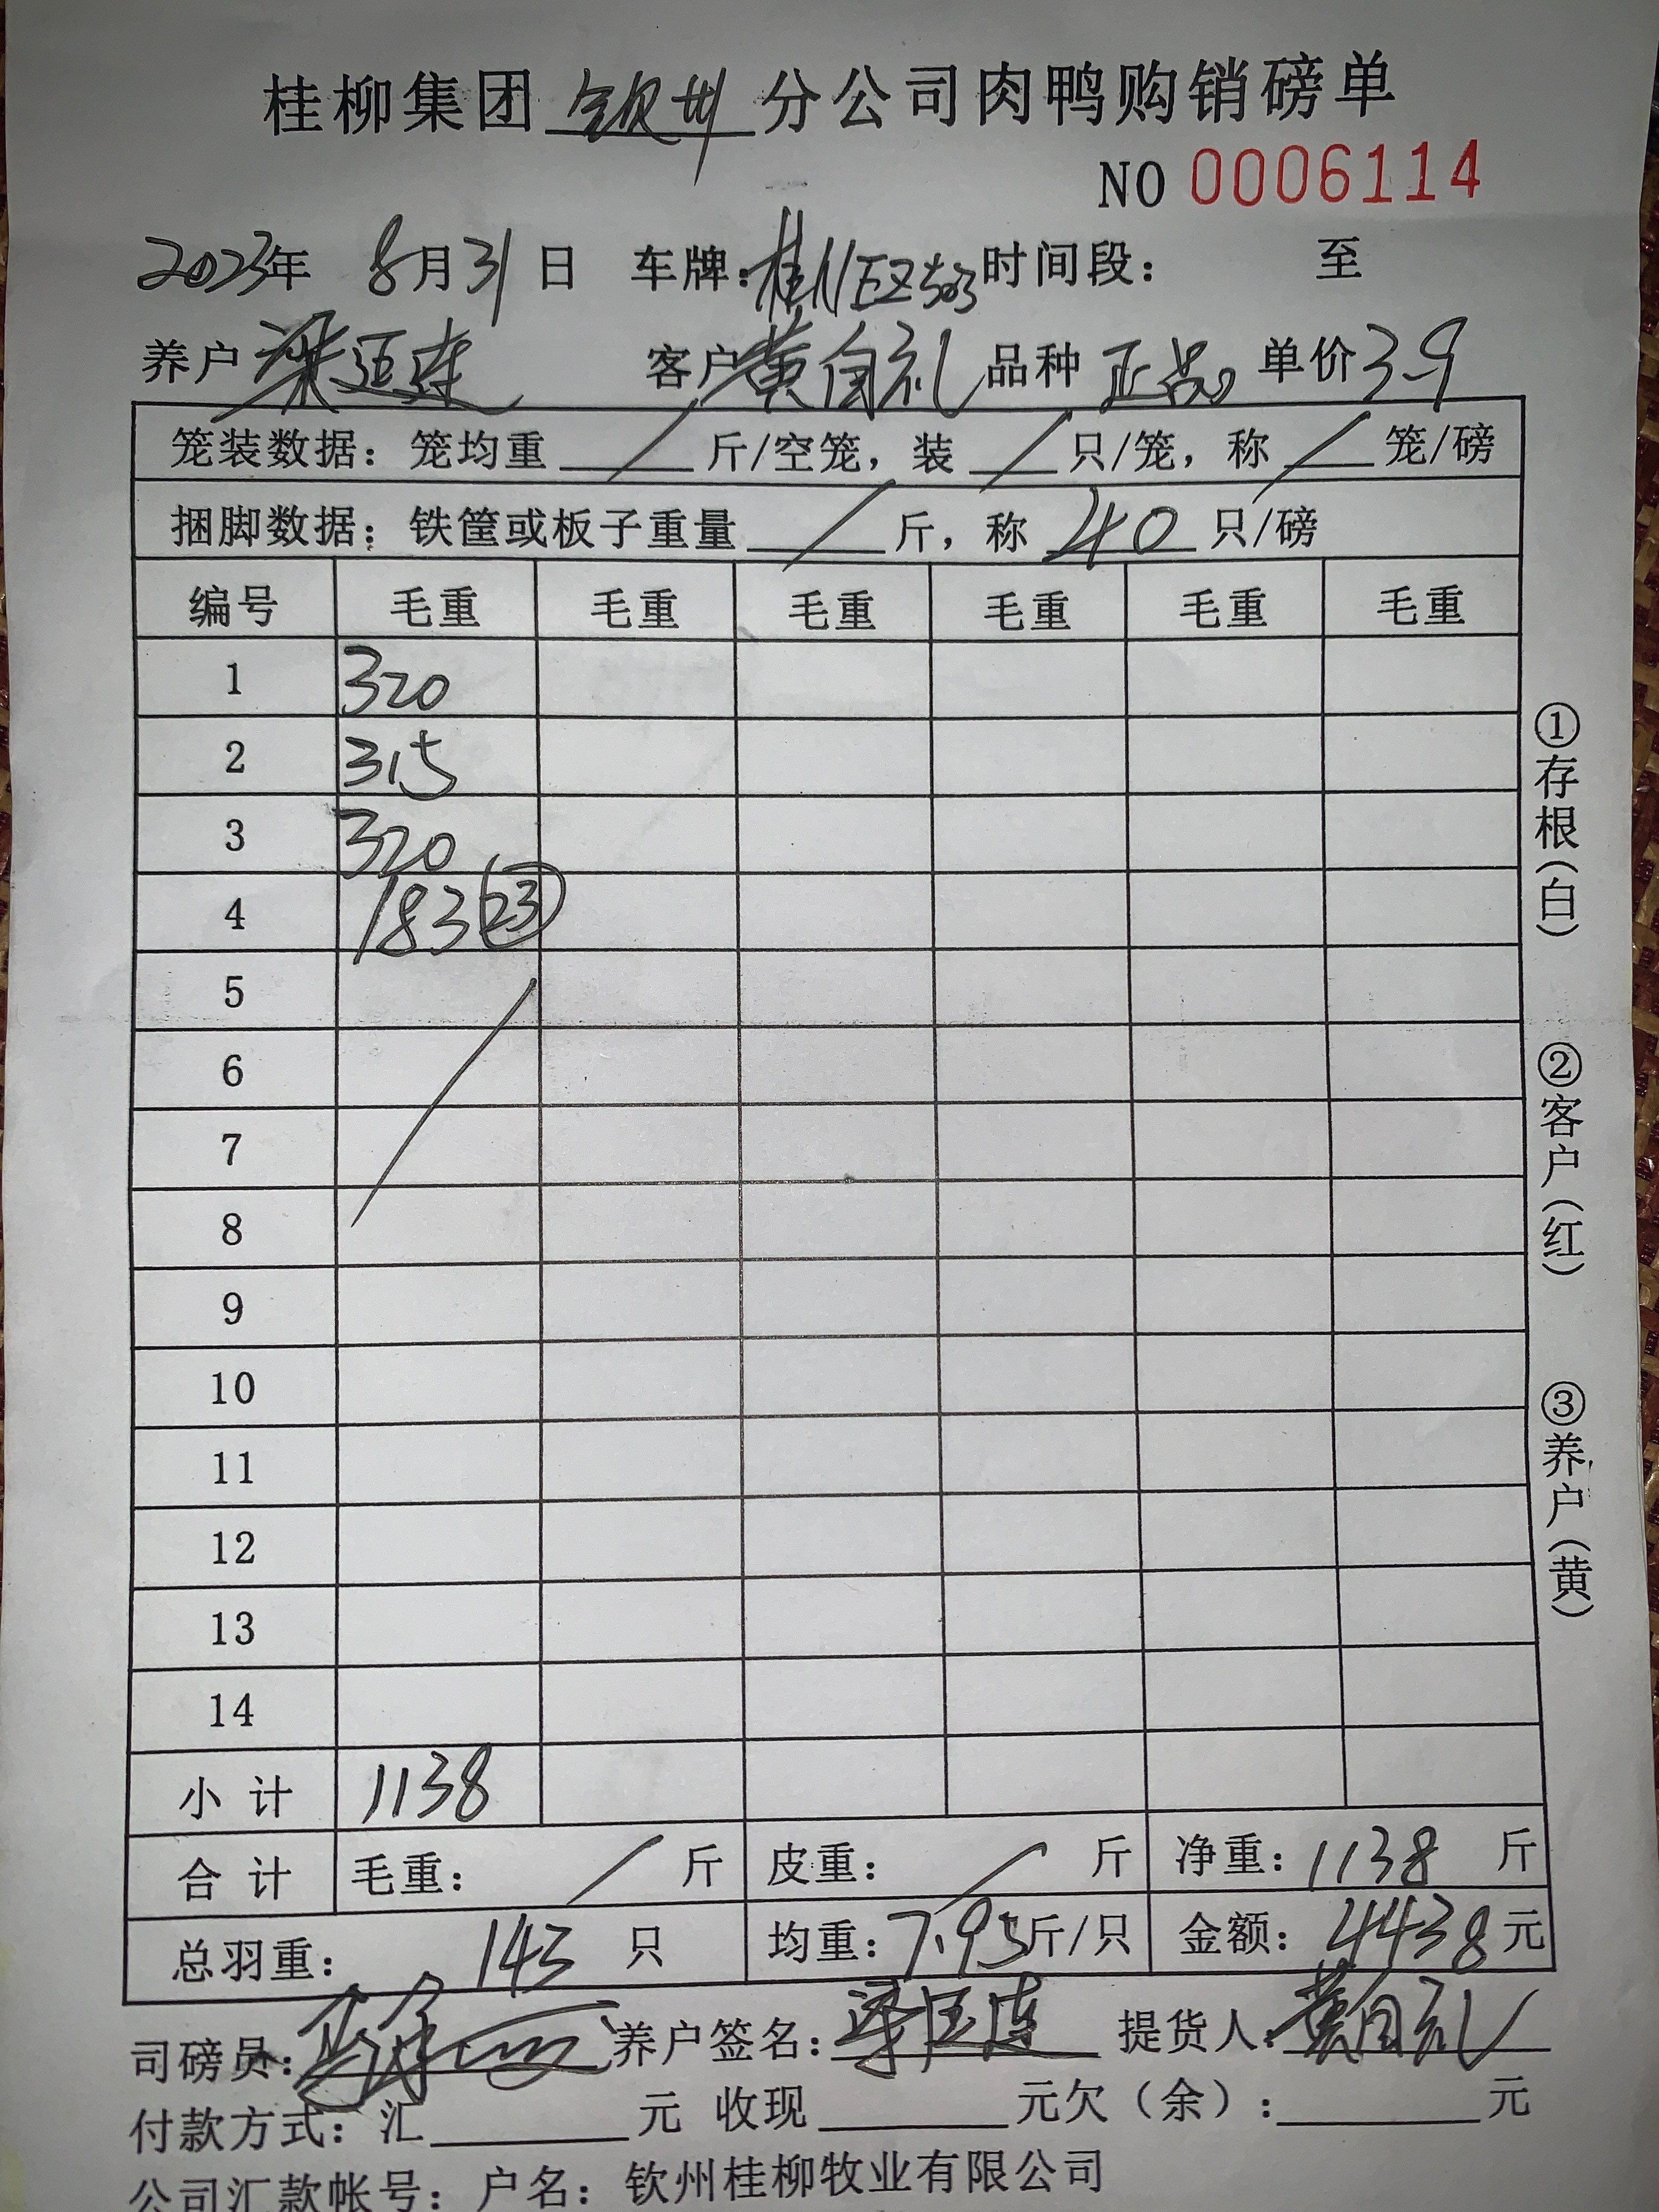 桂柳集团 钦州 分公司肉鸭购销磅单
NO 0006114
2023年 8月31日 车牌：桂NEZ503 时间段： 至
养户 梁 连 客户 黄自礼 品种 正品 单价 3.9
笼装数据：笼均重 / 斤/空笼，装 / 只/笼，称 / 笼/磅
捆脚数据：铁筐或板子重量 / 斤，称 40 只/磅
编号 毛重 毛重 毛重 毛重 毛重 毛重
1 320
2 315
3 320
4 183 23
5
6
7
8
9
10
11
12
13
14
小计 1138
合计 毛重： / 斤 皮重： / 斤 净重：1138 斤
总羽重： 143 只 均重：7.95斤/只 金额：4438元
司磅员： 养户签名： 提货人：黄自礼
付款方式：汇 元 收现 元欠（余）： 元
公司汇款帐号：户名：钦州桂柳牧业有限公司
①存根（白）
②客户（红）
③养户（黄）